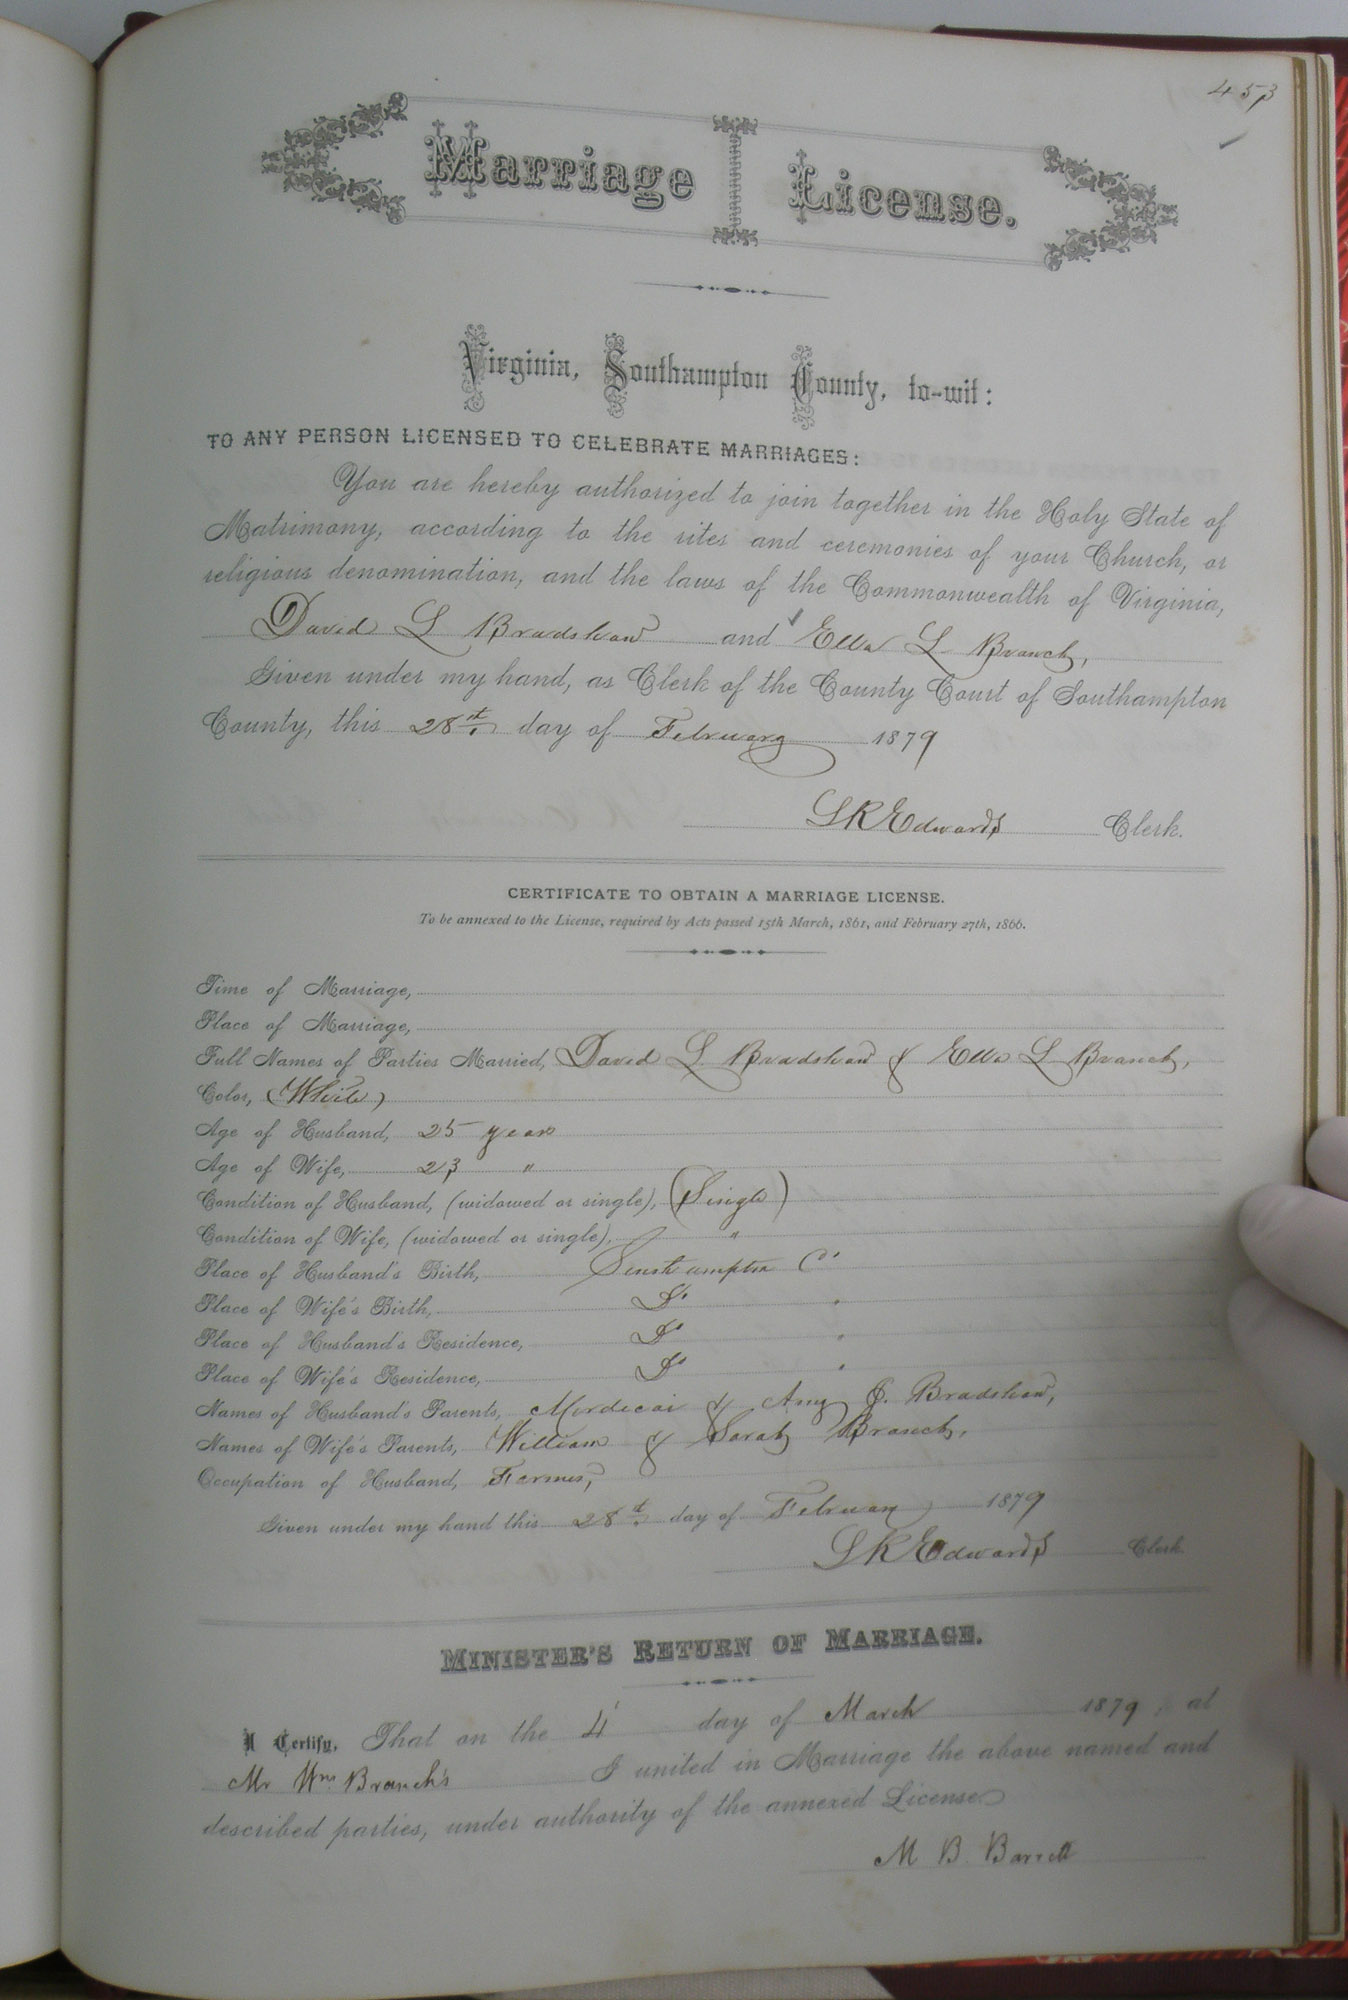 453
Marriage License.
Virginia, Southampton County, to-wit:
TO ANY PERSON LICENSED TO CELEBRATE MARRIAGES:
You are hereby authorized to join together in the Holy State of
Matrimony, according to the rites and ceremonies of your Church, or
religious denomination, and the laws of the Commonwealth of Virginia,
David L Bradshaw and Ella L Branch,
Given under my hand, as Clerk of the County Court of Southampton
County, this 28th day of February 1879
L R Edwards Clerk.
CERTIFICATE TO OBTAIN A MARRIAGE LICENSE.
To be annexed to the License, required by Acts passed 15th March, 1861, and February 27th, 1866.
Time of Marriage,
Place of Marriage,
Full Names of Parties Married, David L. Bradshaw & Ella L Branch,
Color, (White)
Age of Husband, 25 years
Age of Wife, 23 "
Condition of Husband, (widowed or single), (Single)
Condition of Wife, (widowed or single), "
Place of Husband's Birth, Southampton Co
Place of Wife's Birth, Do "
Place of Husband's Residence, Do "
Place of Wife's Residence, Do "
Names of Husband's Parents, Mordecai & Amy J. Bradshaw,
Names of Wife's Parents, William & Sarah Branch,
Occupation of Husband, Farmer,
Given under my hand this 28th day of February 1879
L R Edwards Clerk
MINISTER'S RETURN OF MARRIAGE.
I Certify, That on the 4 day of March 1879, at
Mr Wm Branch's I united in Marriage the above named and
described parties, under authority of the annexed License
M B Barrett